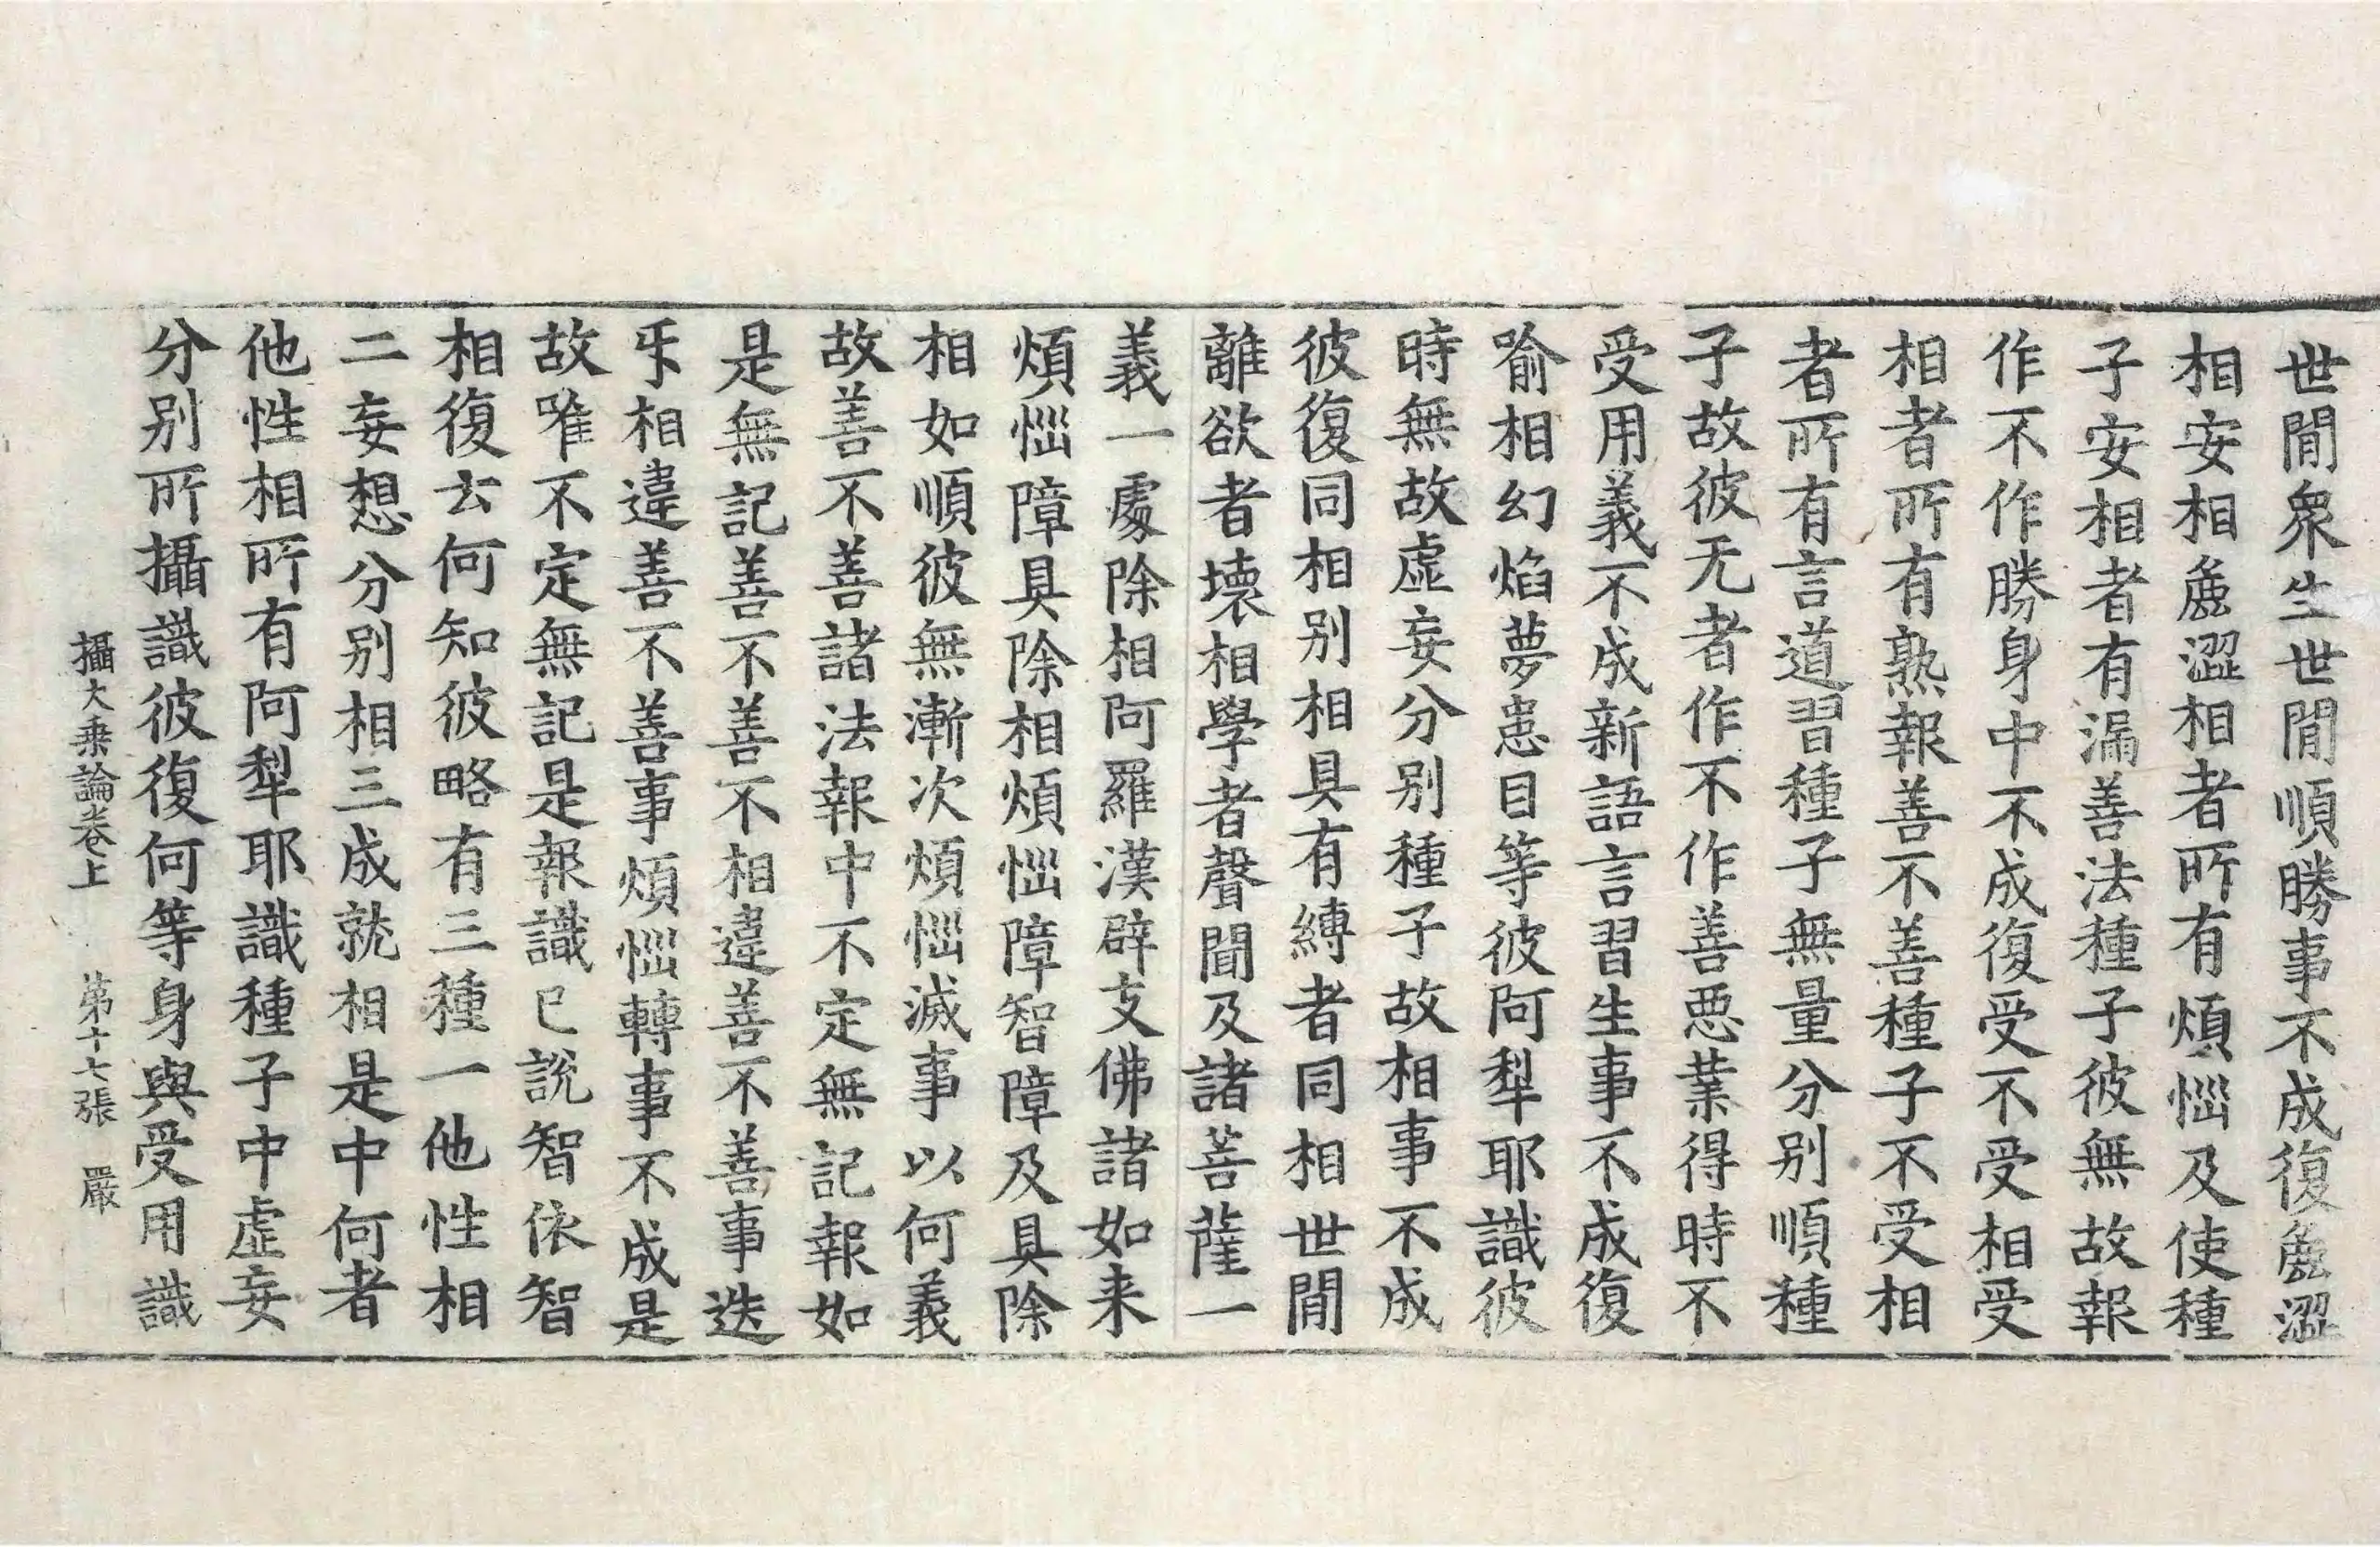 世間衆生世間順勝事不成復麁澀
相安相麁澀相者所有煩惱及使種
子安相者有漏善法種子彼無故報
作不作勝身中不成復受不受相受
相者所有熟報善不善種子不受相
者所有言道習種子無量分别順種
子故彼无者作不作善惡業得時不
受用義不成新語言習生事不成復
喻相幻焰夢患目等彼阿犁耶識彼
時無故虛妄分别種子故相事不成
彼復同相别相具有縛者同相世間
離欲者壞相學者聲聞及諸菩薩一
義一處除相阿羅漢辟支佛諸如来
煩惱障具除相煩惱障智障及具除
相如順彼無漸次煩惱滅事以何義
故善不善諸法報中不定無記報如
是無記善不善不相違善不善事迭
㸦相違善不善事煩惱轉事不成是
故唯不定無記是報識已說智依智
相復云何知彼略有三種一他性相
二妄想分别相三成就相是中何者
他性相所有阿犁耶識種子中虛妄
分别所攝識彼復何等身與受用識
攝大乗論卷上　第十七張　嚴